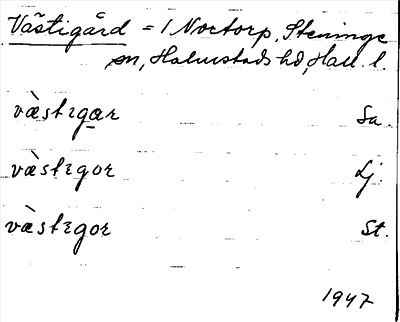 Västigård = 1 Nortorp, Steninge
sn, Halmstads hd, Hall. l.
vàstɪgar Sa.
vàstɪgor Lj.
vàstɪgor St.
1947